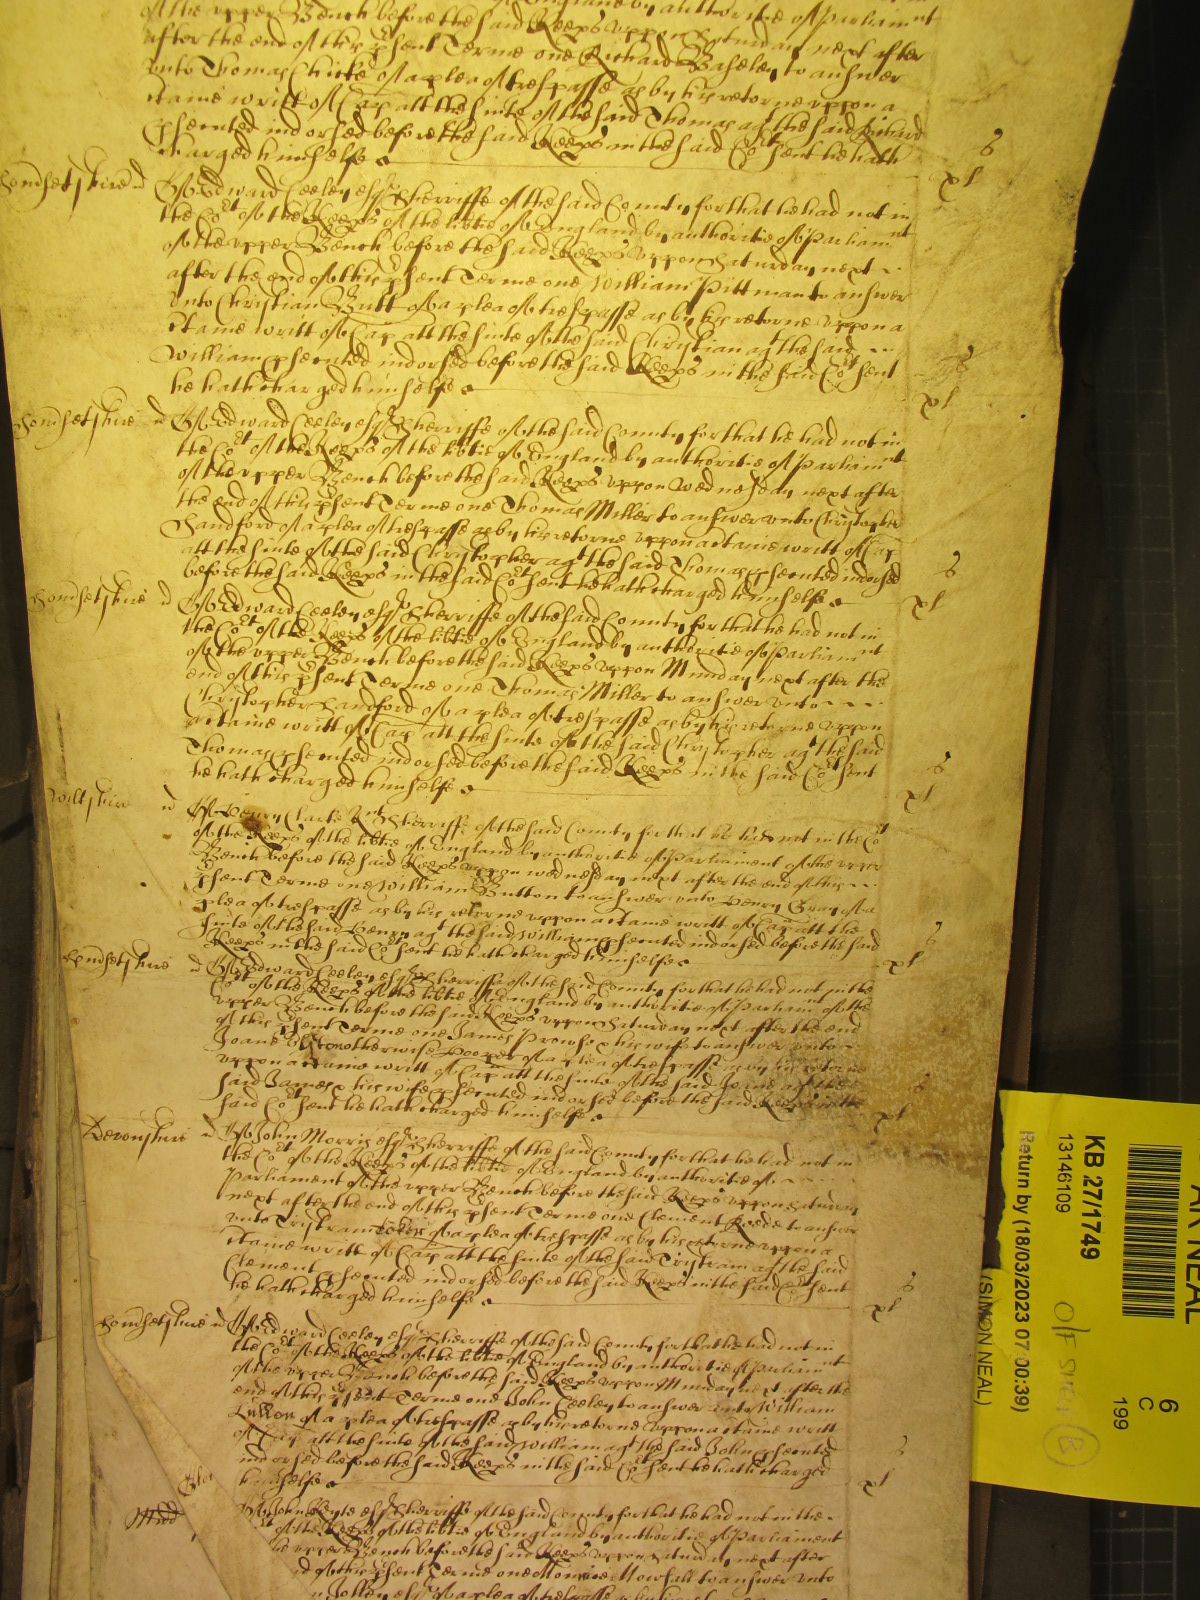 of the upper Bench before the said Keeps uppon Saturday next after
after the end of this psent Terme one Richard Baseley to answer
unto Thomas Chicke of a plea of trespasse as by his retorne uppon a
writt of Cap att the suite of the said Thomas agt the said Richard
psented indorsed before the said Keeps in the said Cort sent he hath
charged himselfe
xl s
Somersetshire Of Edward Ceeley esqr Sherriffe of the said County for that he had not in
the Cort of the Keeps of the libtie of England by authoritie of Parliamnt
of the upper Bench before the said Keeps uppon Saturday next
after the end of this psent Terme one William Pittman to answer
unto Christian Butt of a plea of trespasse as by his retorne uppon a
ctaine writt of Cap att the suite of the said Christian agt the said
William psented indorsed before the said Keeps in the said Cort sent
he hath charged himselfe
xl s
Somersetshire Of Edward Ceeley esqr Sherriffe of the said County for that he had not in
the Cort of the Keeps of the libtie of England by authoritie of Parliamnt
of the upper Bench before the said Keeps uppon Wednesday next after
the end of this psent Terme one Thomas Miller to answer unto Christopher
Sandford of a plea of trespasse as by his retorne uppon a ctaine writt of Cap
att the suite of the said Christopher agt the said Thomas psented indorsed
before the said Keeps in the said Cort sent he hath charged himselfe
xl s
Somersetshire Of Edward Ceeley esqr Sherriffe of the said County for that he had not in
the Cort of the Keeps of the libtie of England by authoritie of Parliamnt
of the upper Bench before the said Keeps uppon Munday next after the
end of this psent Terme one Thomas Miller to answer unto
Christopher Sandford of a plea of trespasse as by his retorne uppon
a ctaine writt of Cap att the suite of the said Christopher agt the said
Thomas psented indorsed before the said Keeps in the said Cort sent
he hath charged himselfe
xl s
Wiltshire Of Henry Clarke Sherriffe of the said County for that he had not in the Cort
of the Keeps of the libtie of England by authoritie of Parliament of the upper
Bench before the said Keeps uppon Wednesday next after the end of this
psent Terme one William Button to answer unto Henry Gray of a
plea of trespasse as by his retorne uppon a ctaine writt of Cap att the
suite of the said Henry agt the said William psented indorsed before the said
Keeps in the said Cort sent he hath charged himselfe
xl s
Somersetshire Of Edward Ceeley esqr Sherriffe of the said County for that he had not in the
Cort of the Keeps of the libtie of England by authoritie of Parliamnt of the
upper Bench before the said Keeps uppon Saturday next after the end
of this psent Terme one James Prowse & his wife to answer unto
Joane otherwise Cooper of a plea of trespasse as by his retorne
uppon a ctaine writt of Cap att the suite of the said Joane agt the
said James & his wife psented indorsed before the said Keeps in the
said Cort sent he hath charged himselfe
xl s
Devonshire Of John Morris esqr Sherriffe of the said County for that he had not in
the Cort of the Keeps of the libtie of England by authoritie of
Parliament of the upper Bench before the said Keeps uppon Saturday
next after the end of this psent Terme one Clement Roede to answer
unto Tristram of a plea of trespasse as by his retorne uppon a
ctaine writt of Cap att the suite of the said Tristram agt the said
Clement psented indorsed before the said Keeps in the said Cort sent
he hath charged himselfe
xl s
Somersetshire Of Edward Ceeley esqr Sherriffe of the said County for that he had not in
the Cort of the Keeps of the libtie of England by authoritie of Parliamnt
of the upper Bench before the said Keeps uppon Munday next after the
end of this psent Terme one John Ceeley to answer unto William
of a plea of trespasse as by his retorne uppon a ctaine writt
of Cap att the suite of the said William agt the said John psented
indorsed before the said Keeps in the said Cort sent he hath charged
himselfe
xl s
Glou
Midd Of John Keyte esqr Sherriffe of the said County for that he had not in the
of the Keeps of the libtie of England by authoritie of Parliament
upper Bench before the said Keeps uppon Saturday next after
of this psent Terme one to answer unto
esqr of a plea of trespasse
AR NEAL
(SIMON NEAL)
6
C
199
KB 27/1749
13146109
Return by (18/03/2023 07:00:39)